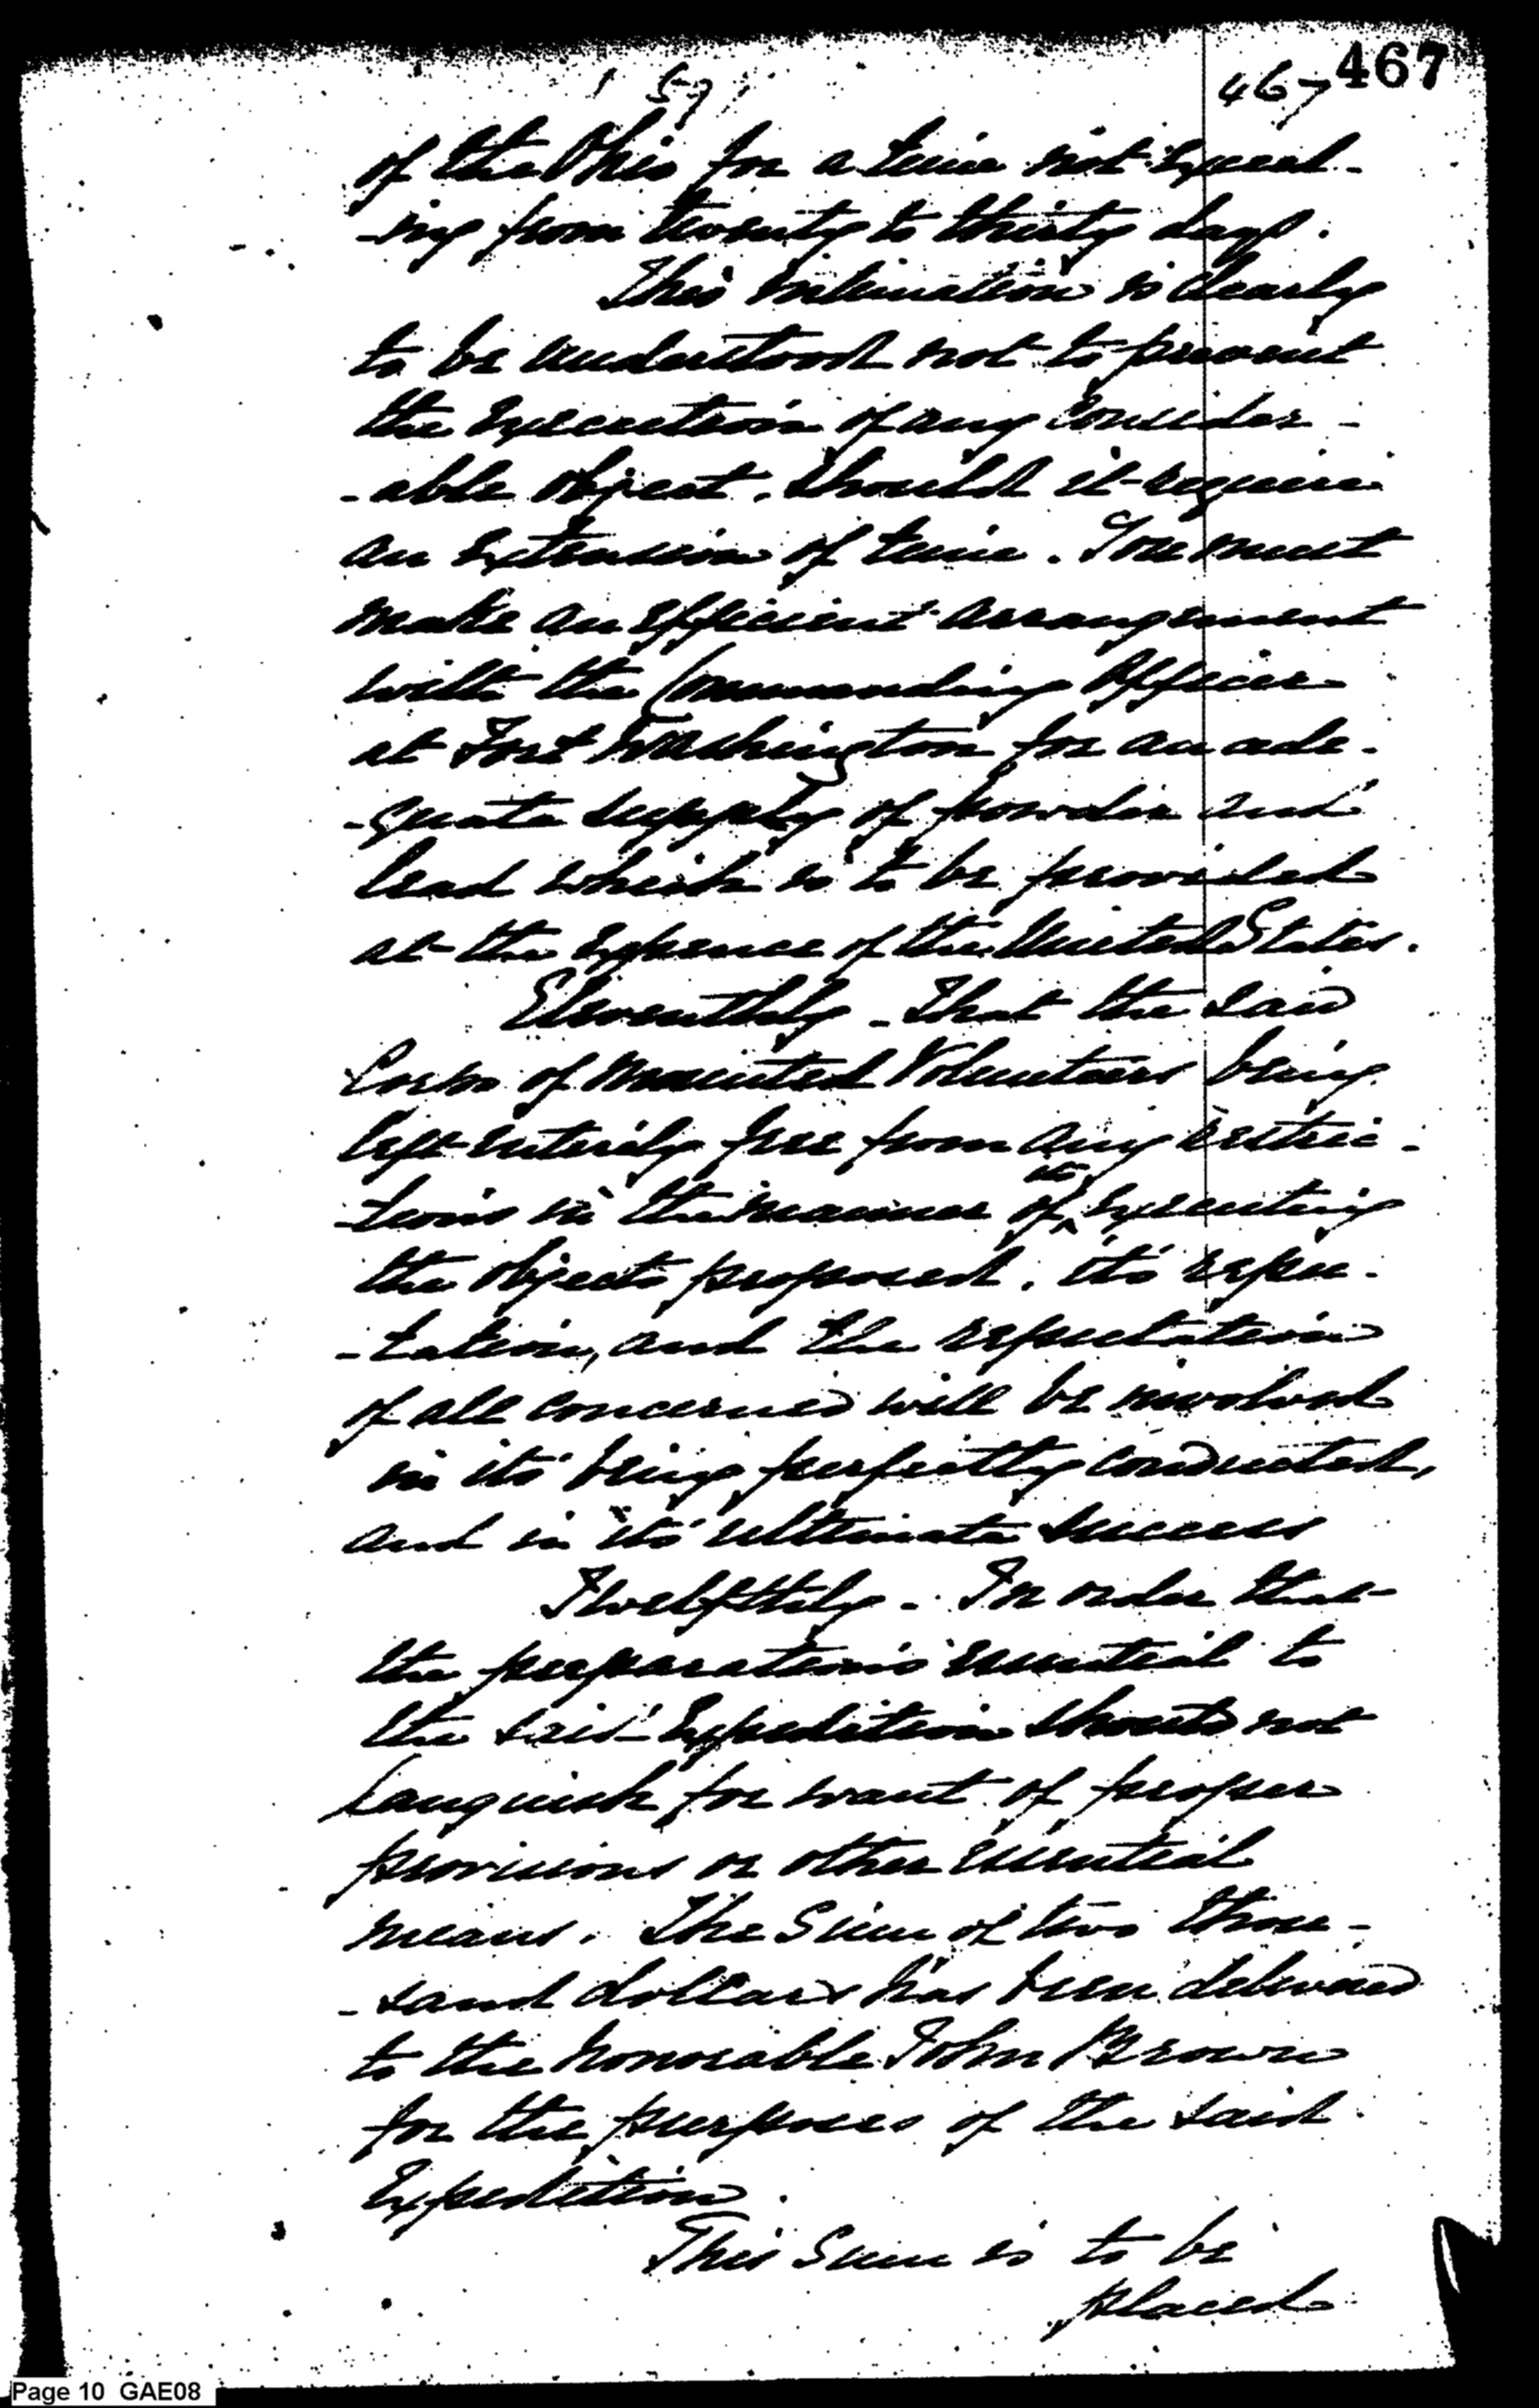 157
467 467
of the Ohio for a time not exceed-
-ing from twenty to thirty days.
This intimation is clearly
to be understood not to prevent
the execution of any consider-
-able object, should it require
an extension of time. You must
make an efficient arrangement
with the Commanding Officer
at Fort Washington for an ade-
-quate supply of powder and
lead which is to be provided
at the expence of the United States.
Eleventhly - That the said
Corps of mounted Volunteers being
left entirely free from any restric-
-tions in the manner of its executing
the objects proposed, it's repu-
-tation, and the reputation
of all concerned will be involved
in its being perfectly conducted,
and in it's ultimate success
Twelfthly - In order that
the preparations essential to
the said Expedition should not
languish for want of proper
provisions or other essential
means. The Sum of two thou-
-sand dollars has been delivered
to the honorable John Brown
for the purposes of the said
Expedition.
This Sum is to be
placed
Page 10 GAE08